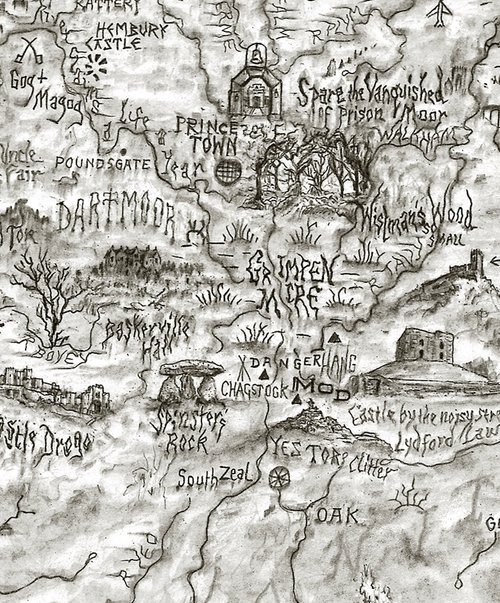 RATTERY
HEMBURY
CASTLE
Gog+
Magog
Life
Spare the Vanquished
of Prison Moor
WALKHAM
PRINCE
TOWN
POUNDSGATE
Year
Uncle
DARTMOOR
Wistman's Wood
SO
SMALL
TOR
GRIMPEN
MIRE
Baskerville
Hall
BOVEY
DANGER
HANG
CHAGSTOCK
MOD
Spinster's
ROCK
Castle by the noisy
Lydford Law
stle Drogo
YES TOR
Clitter
South Zeal
OAK
RED